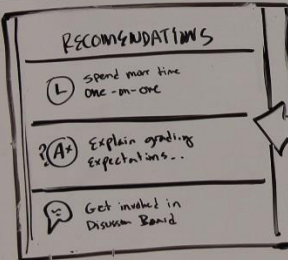 RECOMENDATIONS
L
spend more time
one-on-one
?
A+
Explain grading
Expectations..
Get involved in
Discussion Board